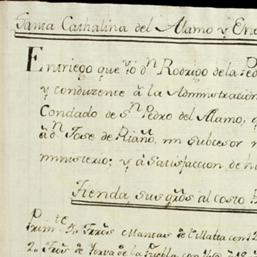 Santa Cathalina del Alamo y Ene
Entriego que yo dn Rodrigo de la Pe
y conduzente â la Administracion
Condado de Sn Pedro del Alamo, q
â dn Jose de Riaño, mi subcesor
ministerio; y â satisfaccion de h
Tienda sus gros al costo
Prim te 7 Mantas de Villalta con 12
2 de Yerva de la Puebla con